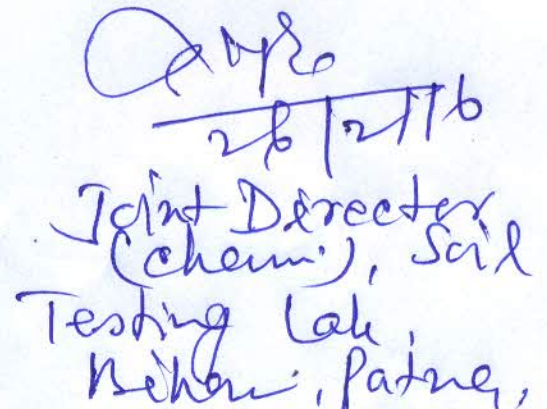 Joint Director
(Chem.), Soil
Testing Lab,
Bihar, Patna,